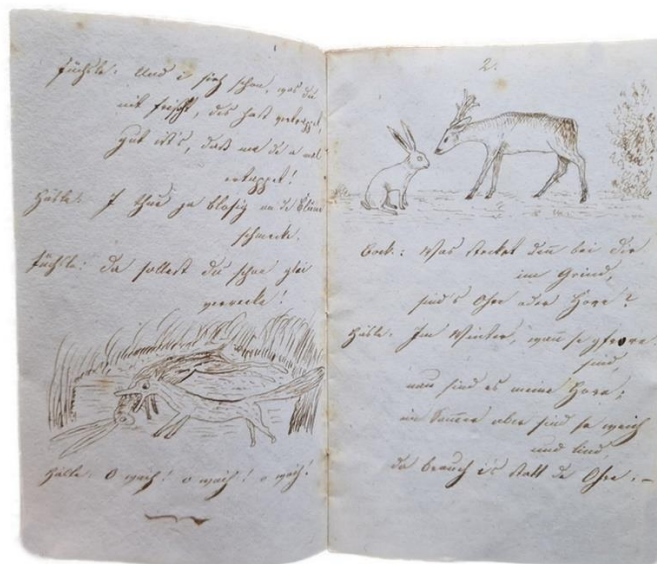 Füchsle. Und i sieh schon, was du
nit frischt, des hast vertrappt,
Gut ist's, daß ma di a mal
ertappet!
Häsle. I thue ja blosig an de Blüme
schmecke.
Füchsle: Da sollest du schon glei
verrecke!
Häsle. O waih! o waih! o waih!
2.
Bock: Was stecket denn bei dir
im Grind,
sind's Ohre oder Hore?
Häsle. Im Winter, wann se gfrore
sind,
nau sind es meine Hore;
im Sommer aber sind se weich
und lind,
da brauch i's statt de Ohre. —